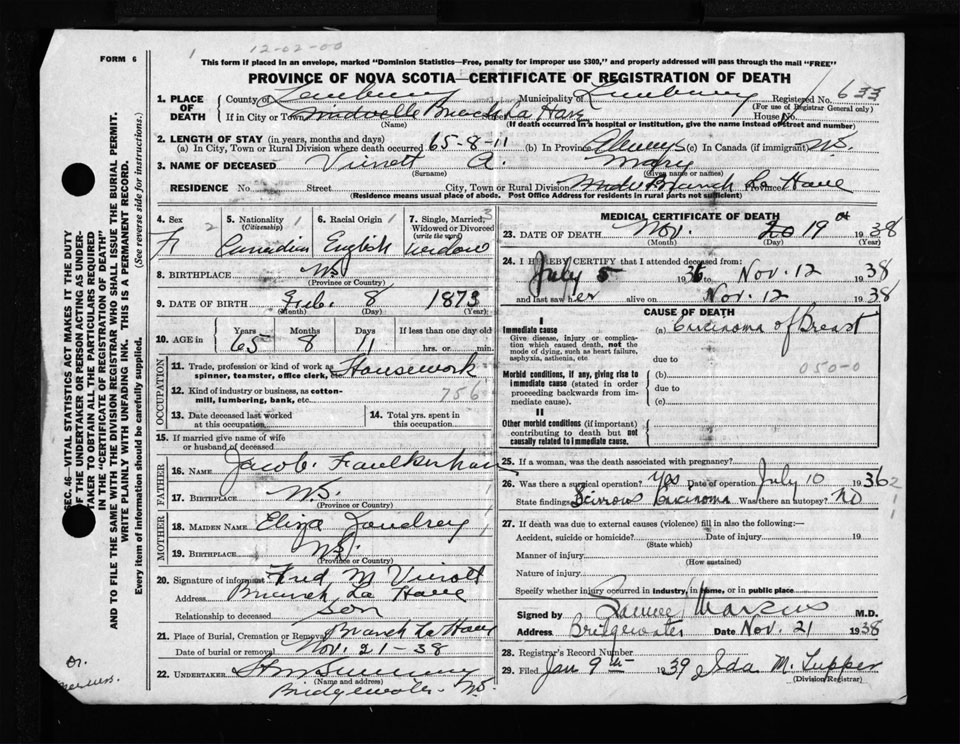 1 12-02-00
FORM 6
This form if placed in an envelope, marked "Dominion Statistics—Free, penalty for improper use $300," and properly addressed will pass through the mail "FREE"
PROVINCE OF NOVA SCOTIA—CERTIFICATE OF REGISTRATION OF DEATH
1. PLACE OF DEATH
County of Lunenburg Municipality of Lunenburg Registered No. 633
(For use of Registrar General only)
If in City or Town Branch La Have House No.
(Name) (If death occurred in a hospital or institution, give the name instead of street and number)
2. LENGTH OF STAY (in years, months and days)
(a) In City, Town or Rural Division where death occurred 65-8-11 (b) In Province Always (c) In Canada (if immigrant) N.S.
3. NAME OF DECEASED Vienott A. Mary
(Surname) (Given name or names)
RESIDENCE No. Street City, Town or Rural Division Branch La Have Province
(Residence means usual place of abode. Post Office Address for residents in rural parts not sufficient)
4. Sex
F 2
5. Nationality 1
(Citizenship)
Canadian
6. Racial Origin 1
English
7. Single, Married, 3
Widowed or Divorced
(write the word)
Widow
8. BIRTHPLACE N.S.
(Province or Country)
9. DATE OF BIRTH Feb. 8 1873
(Month) (Day) (Year)
10. AGE in
Years Months Days If less than one day old
65 8 11 hrs. or min.
OCCUPATION
11. Trade, profession or kind of work as
spinner, teamster, office clerk, etc. Housework
12. Kind of industry or business, as cotton-
mill, lumbering, bank, etc. 756
13. Date deceased last worked
at this occupation
14. Total yrs. spent in
this occupation
15. If married give name of wife
or husband of deceased
FATHER
16. NAME Jacob Faulkenham
17. BIRTHPLACE N.S.
(Province or Country)
MOTHER
18. MAIDEN NAME Eliza Joudrey
19. BIRTHPLACE N.S.
(Province or Country)
20. Signature of informant Fred M Vienott
Address Branch La Have
Relationship to deceased Son
21. Place of Burial, Cremation or Removal Branch La Have
Date of burial or removal Nov. 21-38
22. UNDERTAKER
(Name and address)
Bridgewater N.S.
MEDICAL CERTIFICATE OF DEATH
23. DATE OF DEATH Nov. 20 19th 1938
(Month) (Day) (Year)
24. I HEREBY CERTIFY that I attended deceased from:
July 5 1936 to Nov. 12 1938
and last saw her alive on Nov. 12 1938
CAUSE OF DEATH
I
Immediate cause
Give disease, injury or complication which caused death, not the mode of dying, such as heart failure, asphyxia, asthenia, etc
(a) Carcinoma of Breast
due to
050-0
Morbid conditions, if any, giving rise to immediate cause (stated in order proceeding backwards from immediate cause).
(b)
due to
(c)
II
Other morbid conditions (if important) contributing to death but not causally related to immediate cause.
25. If a woman, was the death associated with pregnancy?
26. Was there a surgical operation? Yes Date of operation July 10 1936 2
State findings Scirrous Carcinoma Was there an autopsy? No 1
27. If death was due to external causes (violence) fill in also the following:—
Accident, suicide or homicide? Date of injury 19
(State which)
Manner of injury
(How sustained)
Nature of injury
Specify whether injury occurred in industry, in home, or in public place
Signed by Marcus M.D.
Address Bridgewater Date Nov. 21 1938
28. Registrar's Record Number
29. Filed Jan 9th 1939 Ida M. Tupper
(Division Registrar)
SEC. 46—VITAL STATISTICS ACT MAKES IT THE DUTY
OF THE UNDERTAKER OR PERSON ACTING AS UNDER-
TAKER TO OBTAIN ALL THE PARTICULARS REQUIRED
IN THE "CERTIFICATE OF REGISTRATION OF DEATH"
AND TO FILE THE SAME WITH THE DIVISION REGISTRAR WHO SHALL ISSUE THE BURIAL PERMIT.
WRITE PLAINLY WITH UNFADING INK. THIS IS A PERMANENT RECORD.
Every item of information should be carefully supplied. (See reverse side for instructions.)
Dr.